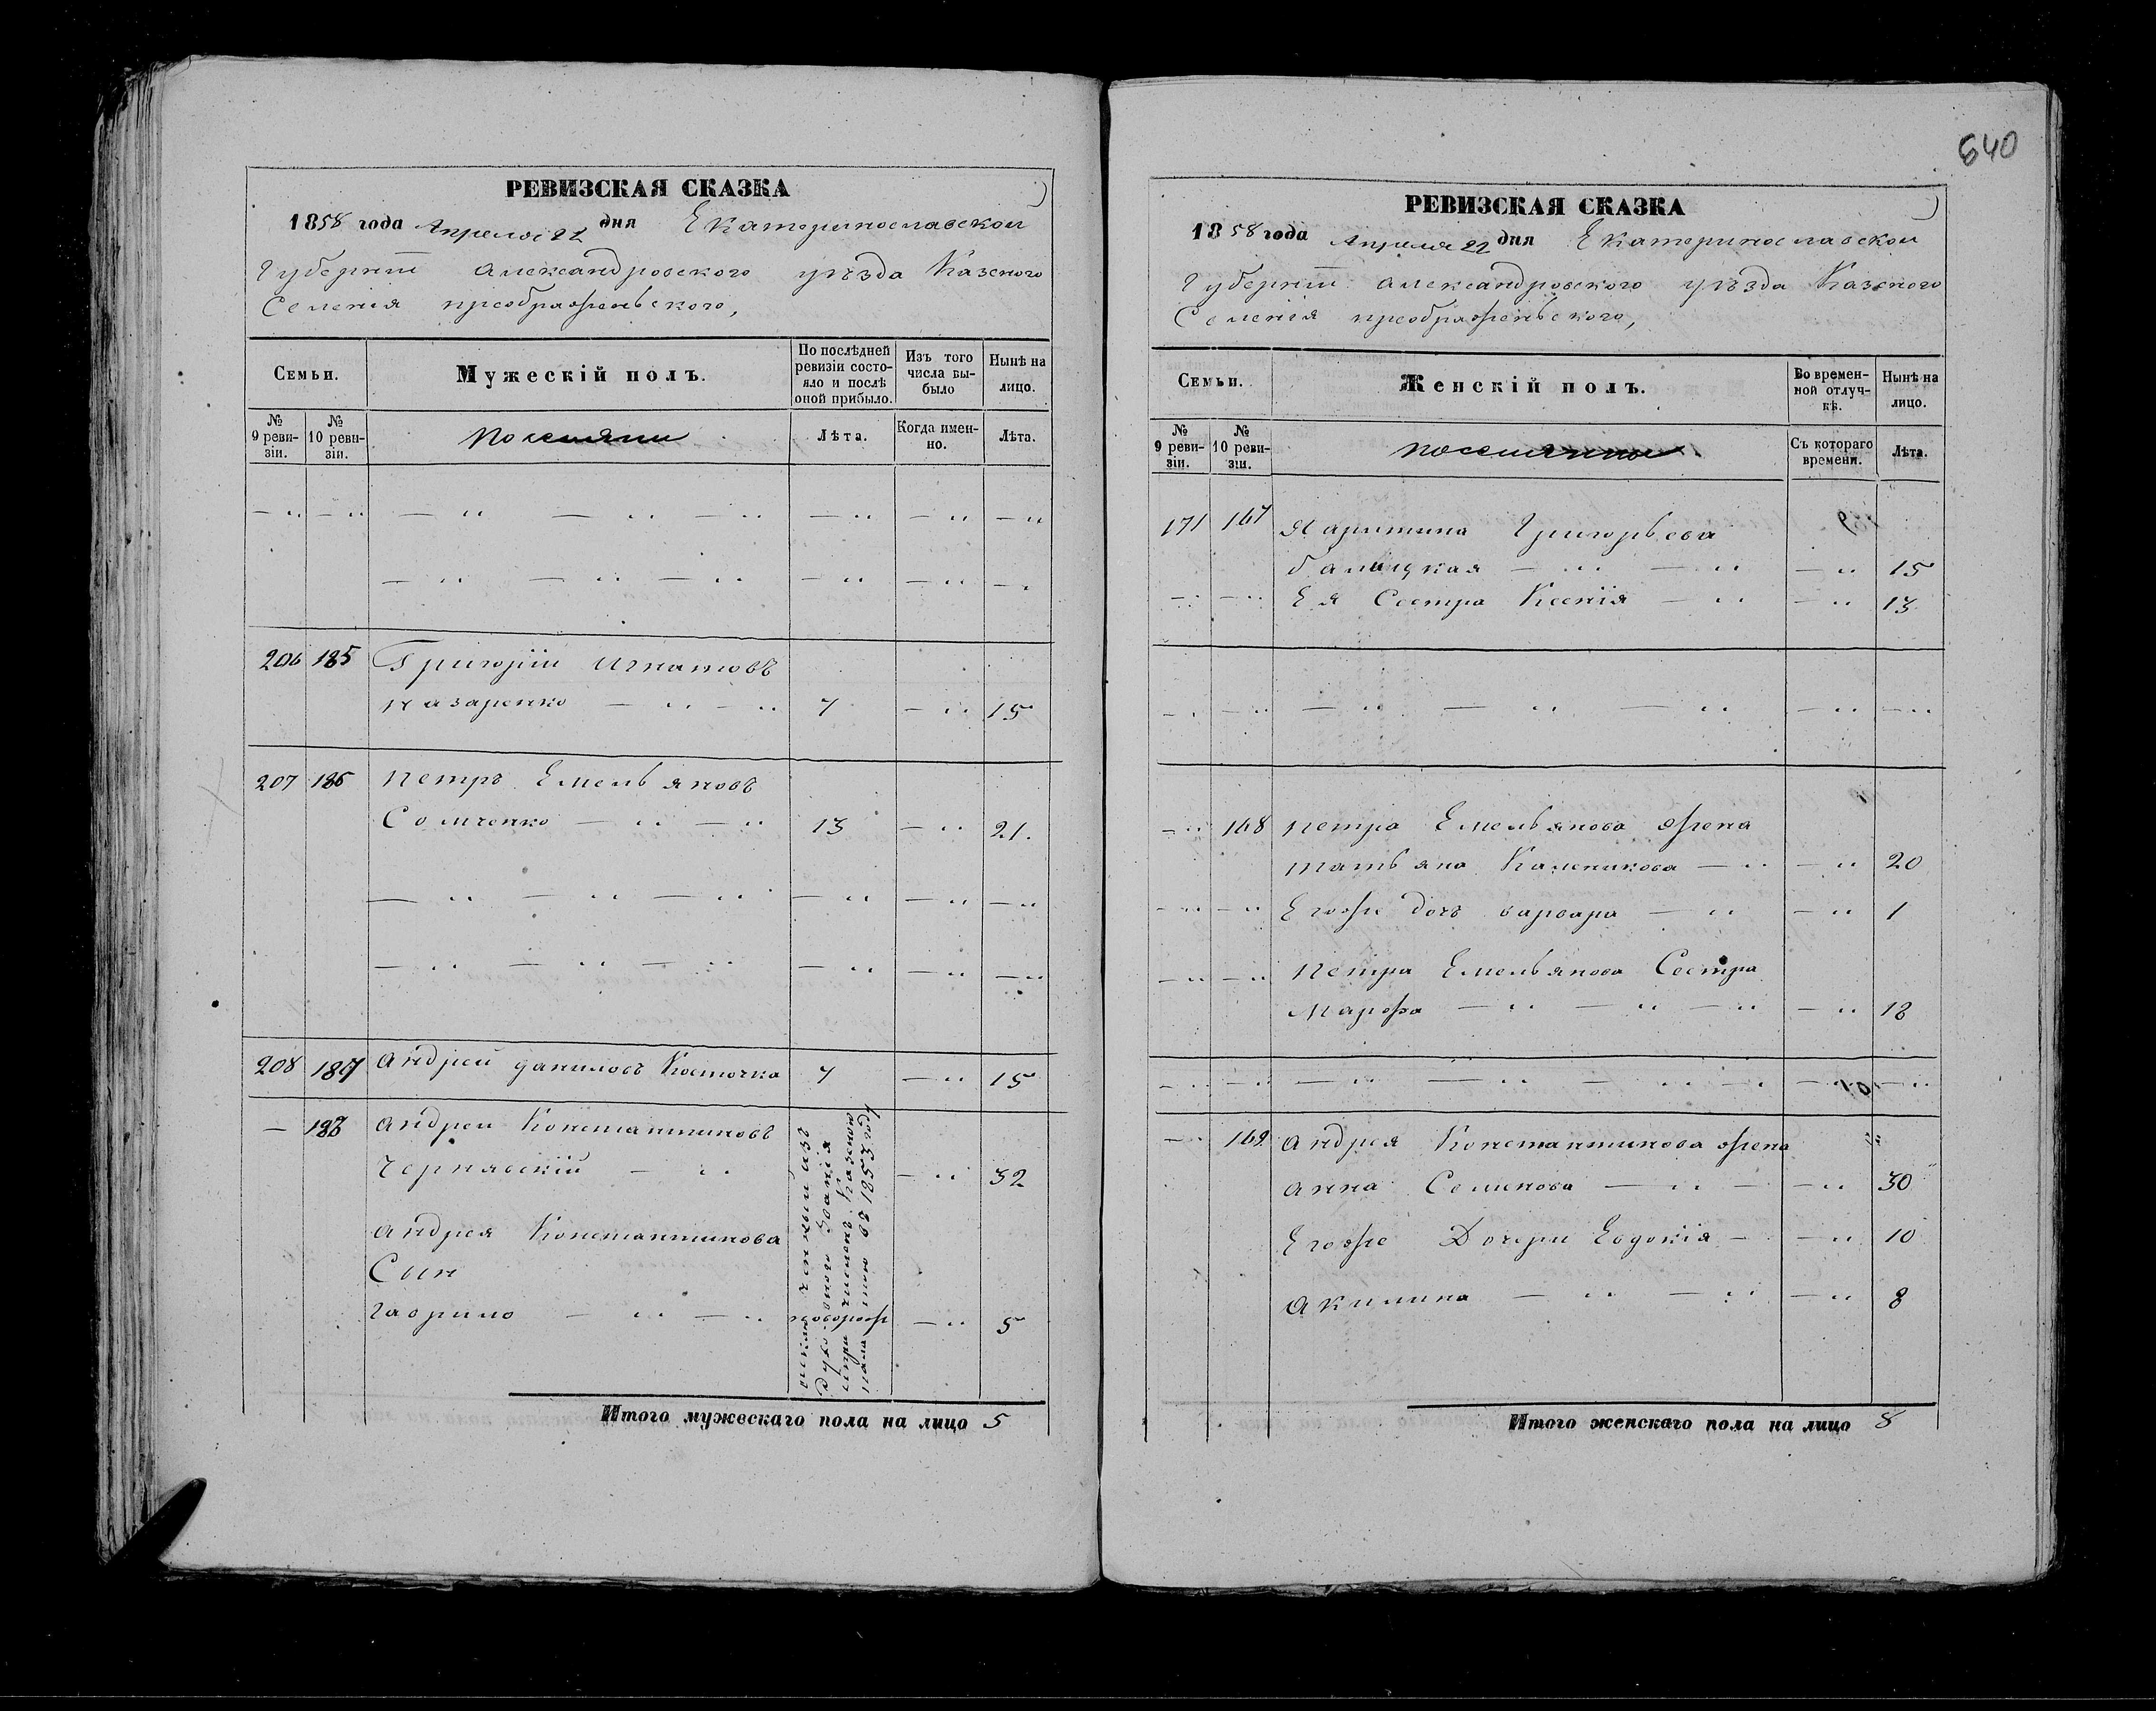 640
РЕВИЗСКАЯ СКАЗКА
1858 года Апреля 22 дня Екатеринославской
Губерніи Александровского уѣзда Казеного
Селенія преображеньского,
Семьи.
Мужескій полъ.
По послѣдней ревизіи состояло и послѣ оной прибыло.
Изъ того числа выбыло
Ныне на лицо.
№ 9 ревизіи.
№ 10 ревизіи.
поселяни
Лѣта.
Когда именно.
Лѣта.
206 185 Григорій Игнатовъ
Назаренко — ,, — ,, 7 — ,, 15
207 186 Петръ Емельяновъ
Сомченко — ,, — ,, 13 — ,, 21.
208 187 Андрей даниловъ Косточка 7 — ,, 15
— 188 Андрей Константиновъ
Чернявскій — ,, — ,, 32
Андрея Константинова
Сын
Гаврило — ,, — ,, — ,, 5
исключенный изъ
духовного званія
и причисленъ Казеною
палатою въ 1853 году
новорож
Итого мужескаго пола на лицо 5
РЕВИЗСКАЯ СКАЗКА
1858 года Апреля 22 дня Екатеринославской
Губерніи Александровского уѣзда Казеного
Селенія преображеньского,
Семьи.
Женскій полъ.
Во временной отлучкѣ.
Нынѣ на лицо.
№ 9 ревизіи.
№ 10 ревизіи.
поселянки
Съ котораго времени.
Лѣта.
171 167 Харитина Григорьева
Галицкая — ,, — ,, — ,, 15
— ,, — ,, Ея Сестра Ксенія — ,, — ,, 13
— ,, 168 Петра Емельянова жена
Татьяна Каленикова — ,, — ,, 20
— ,, — ,, Егоже дочь варвара — ,, — ,, 1
— ,, — ,, Петра Емельянова Сестра
Марфа — ,, — ,, — ,, — ,, 18
— ,, 169. Андрея Константинова жена
Анна Семинова — ,, — — ,, 30
Егоже Дочери Евдокія — — ,, 10
Акилина — ,, — ,, — ,, 8
Итого женскаго пола на лицо 8